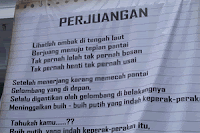 PERJUANGAN
Lihatlah ombak di tengah laut
Berjuang menuju tepian pantai
Tak pernah lelah tak pernah bosan
Tak pernah henti tak pernah usai
Setelah menerjang karang memecah pantai
Gelombang yang di depan.
Selalu digantikan oleh gelombang di belakangnya
Meninggalkan buih - buih putih yang indah keperak-perakan
Tahukah kamu....??
buih putih yang indah keperak-perakan itu,